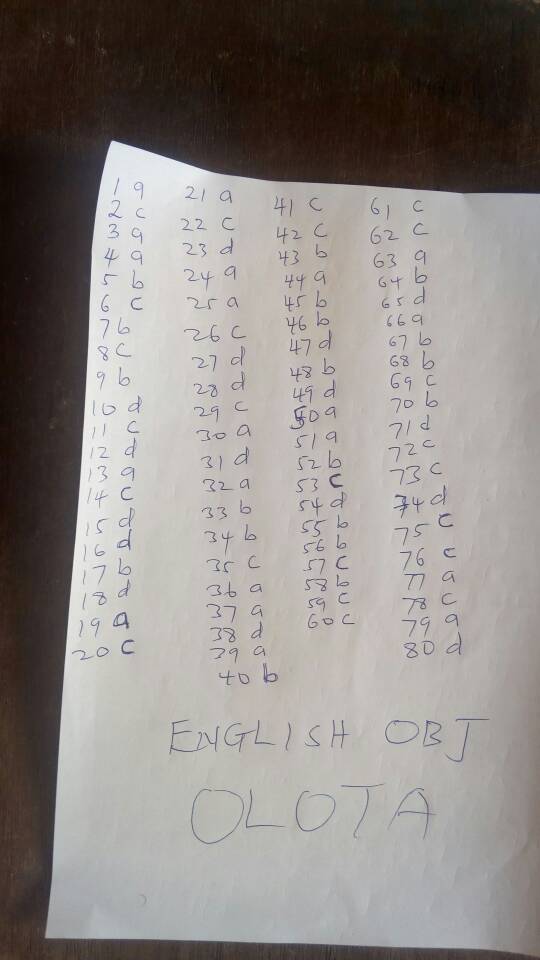 1 a
2 c
3 a
4 a
5 b
6 c
7 b
8 c
9 b
10 d
11 c
12 d
13 a
14 c
15 d
16 d
17 b
18 d
19 a
20 c
21 a
22 c
23 d
24 a
25 a
26 c
27 d
28 d
29 c
30 a
31 d
32 a
33 b
34 b
35 c
36 a
37 a
38 d
39 a
40 b
41 c
42 c
43 b
44 a
45 b
46 b
47 d
48 b
49 d
50 a
51 a
52 b
53 c
54 d
55 b
56 b
57 c
58 b
59 c
60 c
61 c
62 c
63 a
64 b
65 d
66 a
67 b
68 b
69 c
70 b
71 d
72 c
73 c
74 d
75 c
76 c
77 a
78 c
79 a
80 d
ENGLISH OBJ
OLOTA